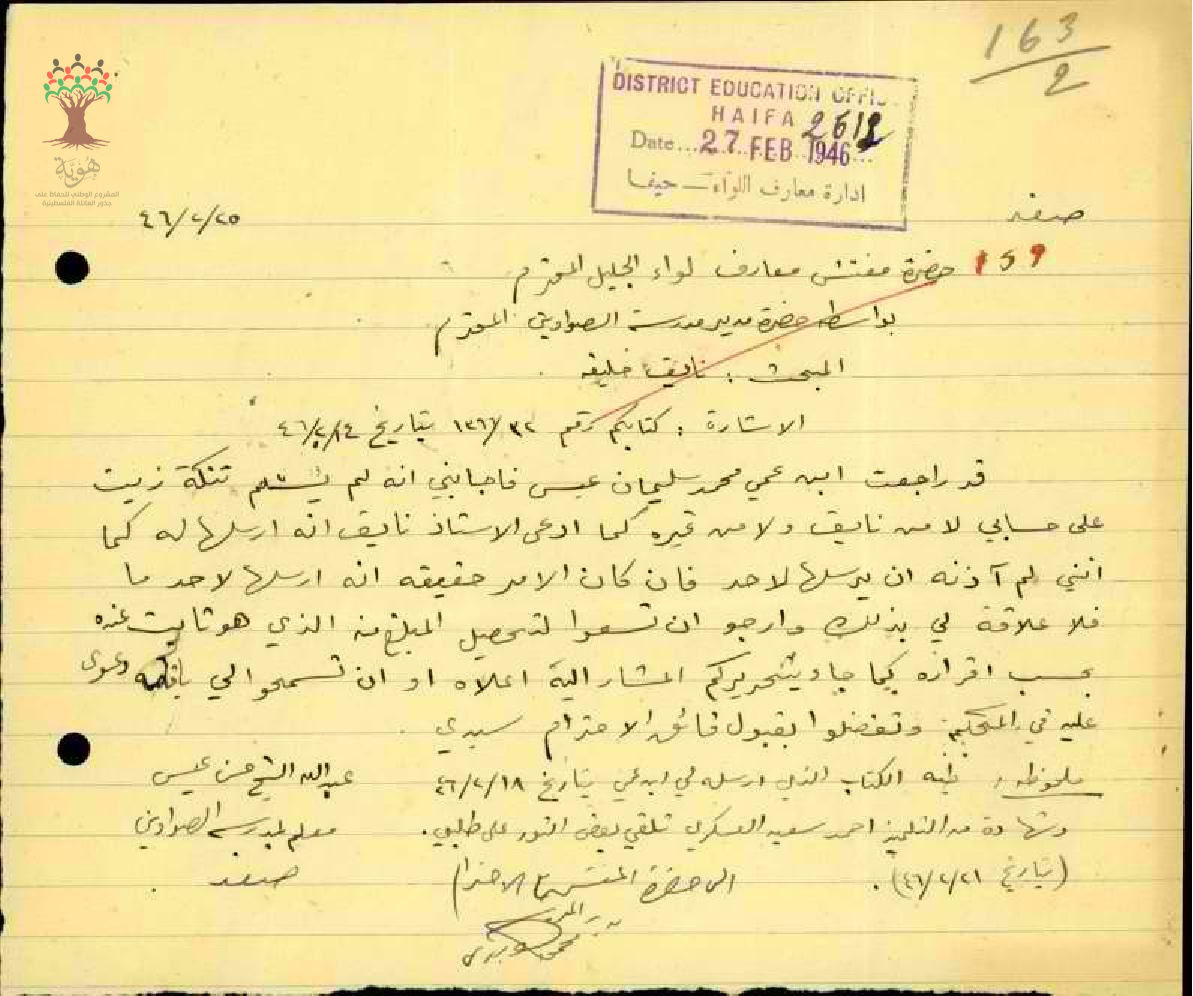 163
2
DISTRICT EDUCATION OFFIC
HAIFA 2612
Date... 27 FEB 1946...
ادارة معارف اللواء — حيفا
هوية
المشروع الوطني للحفاظ على
جذور العائلة الفلسطينية
صفد
٤٦/٢/٢٥
159
حضرة مفتش معارف لواء الجليل المحترم
بواسطة حضرة مدير مدرسة الصواوين المحترم
المبحث : نايف خليفه
الاشارة : كتابكم رقم ١٣٦/٣٢ بتاريخ ٤٦/٢/١٤
قد راجعت ابن عمي محمد سليمان عبس فاجابني انه لم يستلم تنكة زيت
على حسابي لا من نايف ولا من غيره كما ادعى الاستاذ نايف انه ارسلها له كما
انني لم آذنه ان يرسلها لاحد فان كان الامر حقيقه انه ارسلها لاحد ما
فلا علاقة لي بذلك وارجو ان تسعوا لتحصيل المبلغ منه الذي هو ثابت عنده
بحسب اقراره كما جاء بتحريركم المشار اليه اعلاه او ان تسمحوا لي باقامة دعوى
عليه في المحكمة وتفضلوا بقبول فائق الاحترام سيدي
ملحوظه : طيه الكتاب الذي ارسله لي ابن عمي بتاريخ ٤٦/٢/١٨
عبد الله الشيخ حسن عبس
وشهادة من التلميذ احمد سعيد العسكري تلقي بعض النور على طلبي .
معلم بمدرسة الصواوين
(بتاريخ ٤٦/٢/٢١) .
صفد
الى حضرة المفتش مع الاحترام